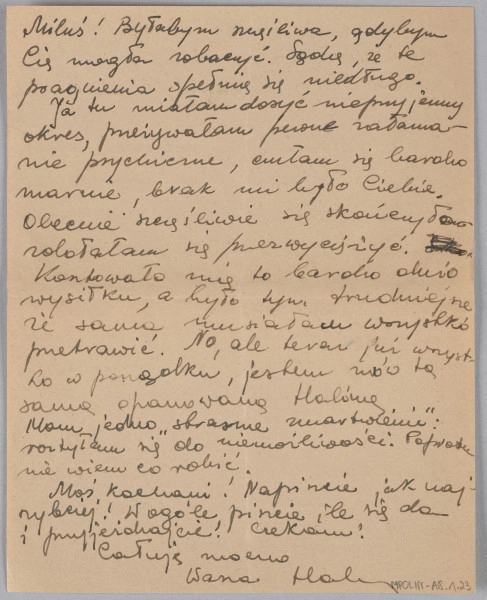 Miluś! Byłabym szczęśliwa, gdybym
Cię mogła zobaczyć. Sądzę, że te
pragnienia spełnią się niedługo.
Ja tu miałam dosyć nieprzyjemny
okres, przeżywałam pewne załama-
nie psychiczne, czułam się bardzo
marnie, brak mi było Ciebie.
Obecnie szczęśliwie się skończyło
zdołałam się przezwyciężyć.
Kosztowało mię to bardzo dużo
wysiłku, a było tym trudniejsze
że sama musiałam wszystko
przetrawić. No, ale teraz już wszyst-
ko w porządku, jestem znów tą
samą opanowaną Haliną
Mam jedno „straszne zmartwienie":
roztyłam się do niemożliwości. Poprostu
nie wiem co robić.
Moi kochani! Napiszcie jak naj-
szybciej! Wogóle piszcie ile się da
i przyjeżdżajcie! Czekam!
Całuję mocno
Wasza Hal
MPOLIN-A8.1.23